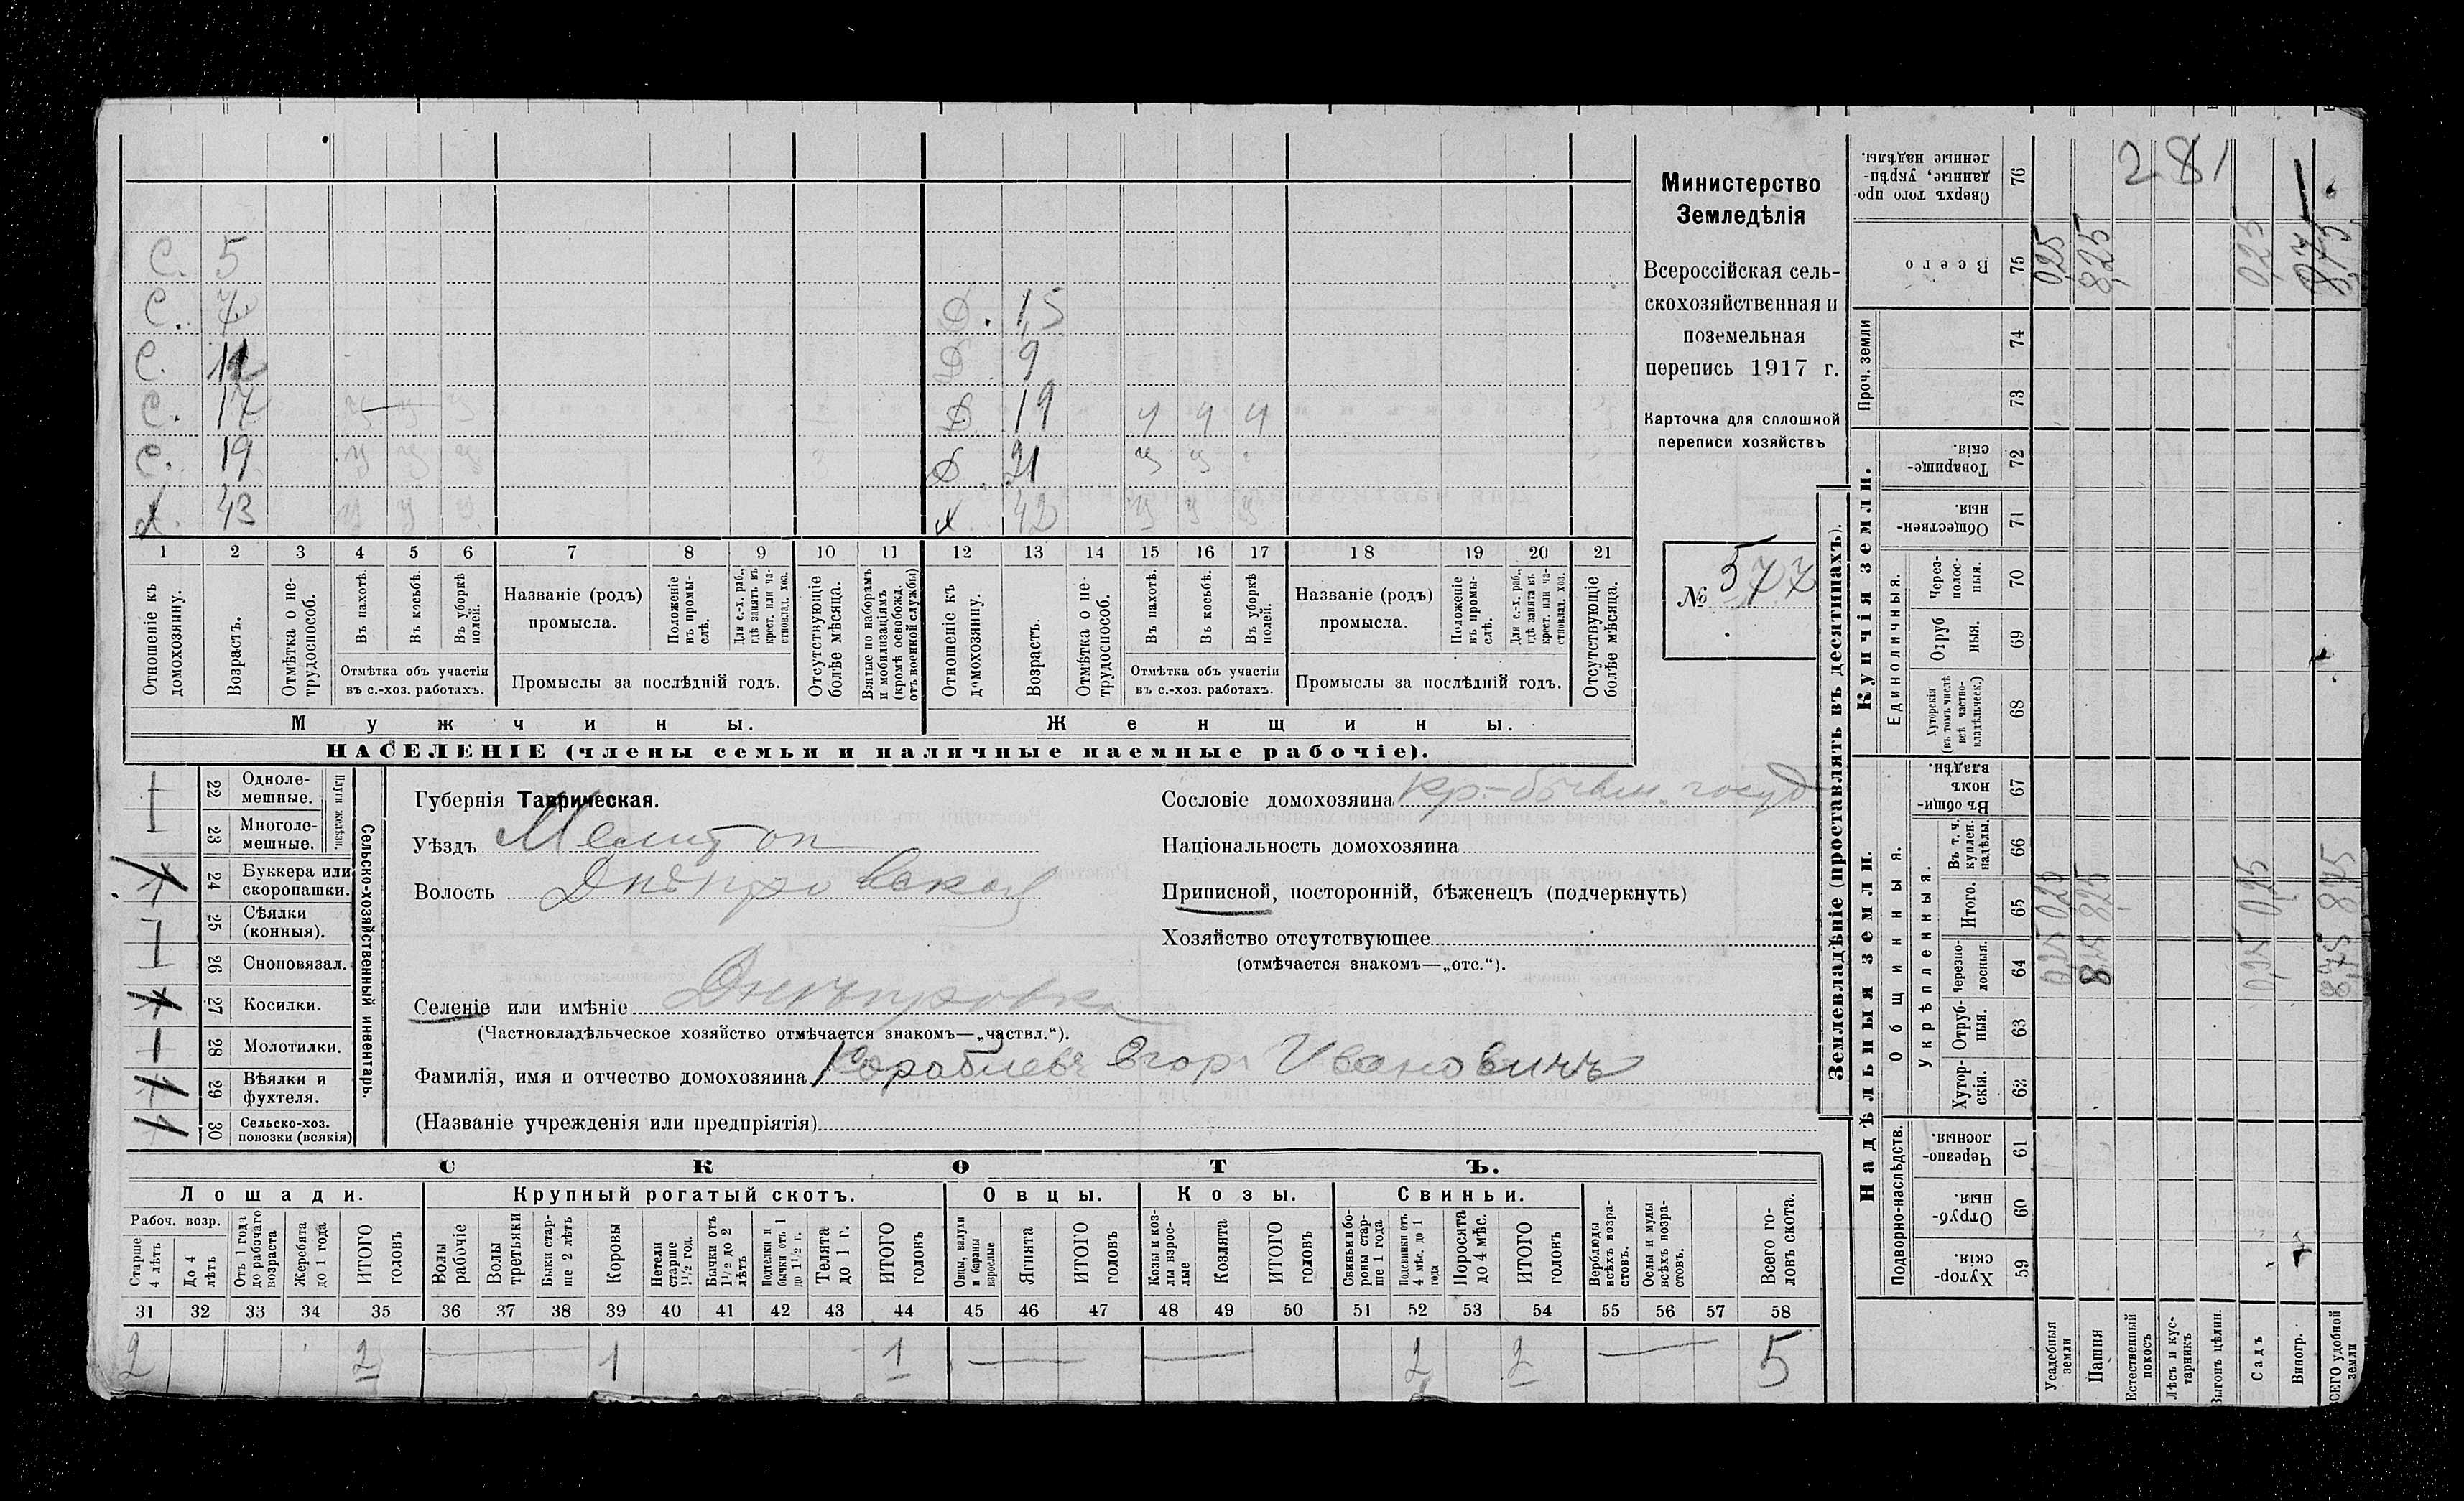 С. 5
С. 7 Д. 1,5
С. 11 Д 9
С. 17 у у у Д. 19 ч ч ч
С. 19 у у у Д. 21 у у
Х. 43 у у у Х. 42 у у у
1 2 3 4 5 6 7 8 9 10 11 12 13 14 15 16 17 18 19 20 21
Отношеніе къ домохозяину.
Возрастъ.
Отмѣтка о не-трудоспособ.
Въ пахотѣ.
Въ косьбѣ.
Въ уборкѣ полей.
Отмѣтка объ участіи въ с.-хоз. работахъ.
Названіе (родъ) промысла.
Положеніе въ промы-слѣ.
Для с.-х. раб., гдѣ занятъ въ крест. или ча-стновлад. хоз.
Промыслы за послѣдній годъ.
Отсутствующіе болѣе мѣсяца.
Взятые по наборамъ и мобилизаціямъ (кромѣ освобожд. отъ военной службы)
Отношеніе къ домохозяину.
Возрастъ.
Отмѣтка о не-трудоспособ.
Въ пахотѣ.
Въ косьбѣ.
Въ уборкѣ полей.
Отмѣтка объ участіи въ с.-хоз. работахъ.
Названіе (родъ) промысла.
Положеніе въ промы-слѣ.
Для с.-х. раб., гдѣ занята въ крест. или ча-стновлад. хоз.
Промыслы за послѣдній годъ.
Отсутствующіе болѣе мѣсяца.
Мужчины. Женщины.
НАСЕЛЕНІЕ (члены семьи и наличные наемные рабочіе).
Министерство
Земледѣлія
Всероссійская сель-
скохозяйственная и
поземельная
перепись 1917 г.
Карточка для сплошной
переписи хозяйствъ
№ 577
22 Одноле-мешные.
23 Многоле-мешные.
Плуги желѣзн.
24 Буккера или скоропашки. 1
25 Сѣялки (конныя).
26 Сноповязал.
27 Косилки. 1
28 Молотилки.
29 Вѣялки и фухтеля. 1
30 Сельско-хоз. повозки (всякія) 1
Сельско-хозяйственный инвентарь.
Губернія Таврическая.
Уѣздъ Мелитоп
Волость Днѣпровская
Сословіе домохозяина кр-бывш. госуд
Національность домохозяина
Приписной, посторонній, бѣженецъ (подчеркнуть)
Хозяйство отсутствующее
(отмѣчается знакомъ—„отс.“).
Селеніе или имѣніе Днѣпровка
(Частновладѣльческое хозяйство отмѣчается знакомъ—„частвл.“).
Фамилія, имя и отчество домохозяина Кораблевъ Егоръ Ивановичъ
(Названіе учрежденія или предпріятія)
СКОТЪ.
Лошади. Крупный рогатый скотъ. Овцы. Козы. Свиньи.
Рабоч. возр.
Старше 4 лѣтъ
До 4 лѣтъ
Отъ 1 года до рабочаго возраста
Жеребята до 1 года
ИТОГО головъ
Волы рабочіе
Волы третьяки
Быки стар-ше 2 лѣтъ
Коровы
Нетели старше 1½ год.
Бычки отъ 1½ до 2 лѣтъ
Подтелки и бычки отъ 1 до 1½ г.
Телята до 1 г.
ИТОГО головъ
Овцы, валухи и бараны взрослые
Ягнята
ИТОГО головъ
Козы и коз-лы взрос-лые
Козлята
ИТОГО головъ
Свиньи и бо-ровы стар-ше 1 года
Подсвинки отъ 4 мѣс. до 1 года
Поросята до 4 мѣс.
ИТОГО головъ
Верблюды всѣхъ возра-стовъ.
Ослы и мулы всѣхъ возра-стовъ.
Всего го-ловъ скота.
31 32 33 34 35 36 37 38 39 40 41 42 43 44 45 46 47 48 49 50 51 52 53 54 55 56 57 58
2 2 — 1 1 — — 2 2 — 5
Землевладѣніе (проставлять въ десятинахъ).
Надѣльныя земли.
Купчія земли.
Проч. земли
Подворно-наслѣдств.
Общинныя.
Укрѣпленныя.
Единоличныя.
Хутор-скія. 59
Отруб-ныя. 60
Черезпо-лосныя. 61
Хутор-скія. 62
Отруб-ныя. 63
Черезпо-лосныя. 64
Итого. 65
Въ т. ч. куплен. надѣлы. 66
Въ общи-номъ владѣн. 67
Хуторскія (въ томъ числѣ всѣ частно-владѣльческ.) 68
Отруб ныя. 69
Через-полос-ныя. 70
Обществен-ныя. 71
Товарище-скія. 72
73
74
Всего 75
Сверхъ того про-данные, укрѣп-ленные надѣлы. 76
281
Усадебныя земли 0,25 0,25 0,25
Пашня 8,25 8,25 8,25
Естественный покосъ
Лѣсъ и кус-тарникъ
Выгонъ цѣлин.
Садъ 0,25 0,25 0,25
Виногр.
ВСЕГО удобной земли 8,75 8,75 8,75